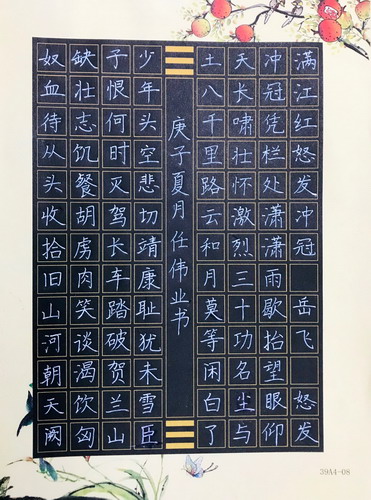 满江红怒发冲冠 岳飞 怒发
冲冠凭栏处潇潇雨歇抬望眼仰
天长啸壮怀激烈三十功名尘与
土八千里路云和月莫等闲白了
庚子夏月任伟业书
少年头空悲切靖康耻犹未雪臣
子恨何时灭驾长车踏破贺兰山
缺壮志饥餐胡虏肉笑谈渴饮匈
奴血待从头收拾旧山河朝天阙
39A4-08